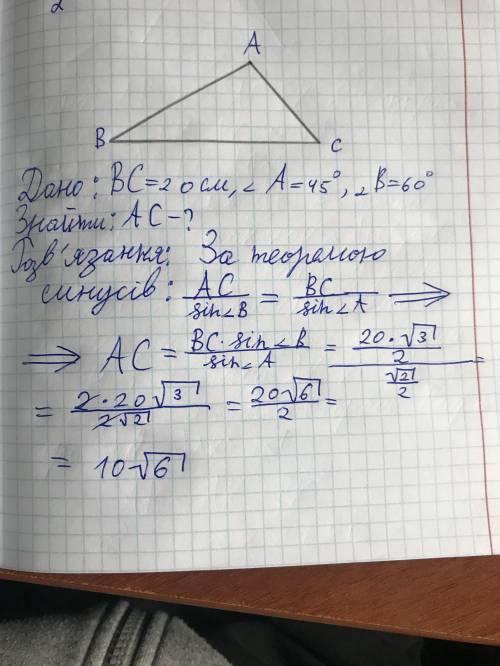 2
A
B
C
Дано: BC=20см, ∠A=45°, ∠B=60°
Знайти: AC-?
Розв'язання: За теоремою
синусів: AC/sin∠B = BC/sin∠A ⟹
⟹ AC = BC·sin∠B/sin∠A = (20·√3/2)/(√2/2) =
= 2·20√3/2√2 = 20√6/2 =
= 10√6